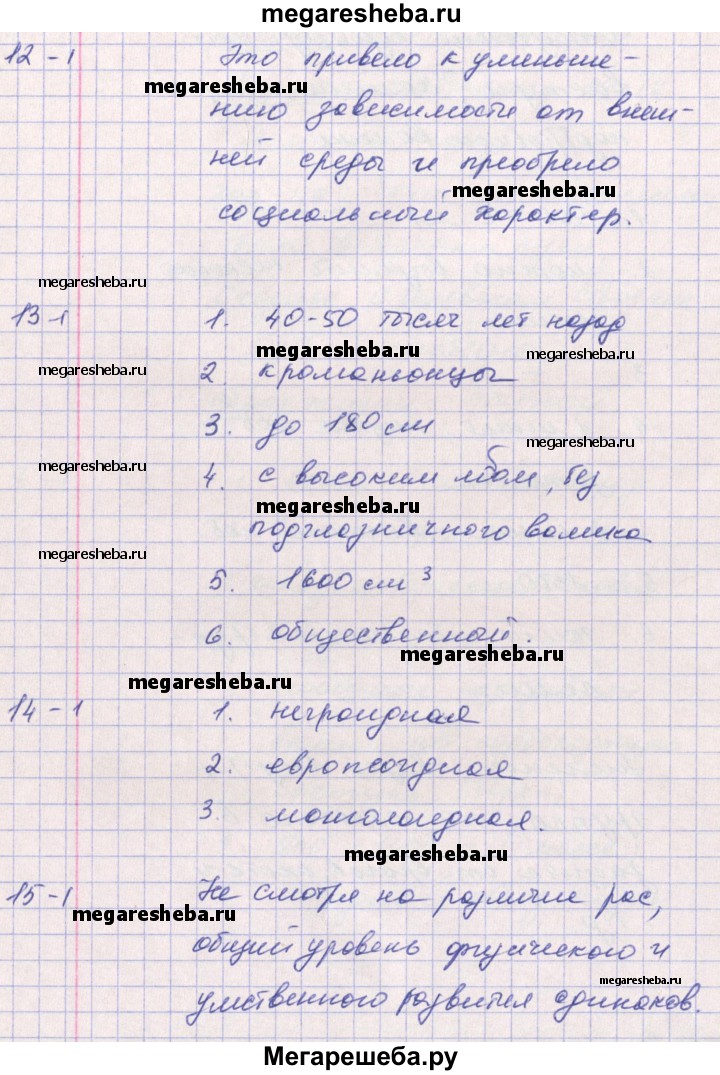 megaresheba.ru
12-1 Это привело к уменьше-
megaresheba.ru
нию зависимости от внеш-
ней среды и преобрело
megaresheba.ru
социальный характер.
megaresheba.ru
13-1 1. 40-50 тысяч лет назад
megaresheba.ru megaresheba.ru
megaresheba.ru 2. кроманьонцы
3. до 180 см
megaresheba.ru
megaresheba.ru 4. с высоким лбом, без
megaresheba.ru
подглазничного валика
megaresheba.ru
5. 1600 см³
6. общественный.
megaresheba.ru
megaresheba.ru
14-1 1. негроидная
2. европеоидная
3. монголоидная.
megaresheba.ru
15-1 Не смотря на различие рас,
megaresheba.ru
общий уровень физического и
megaresheba.ru
умственного развития одинаков.
Мегарешеба.ру